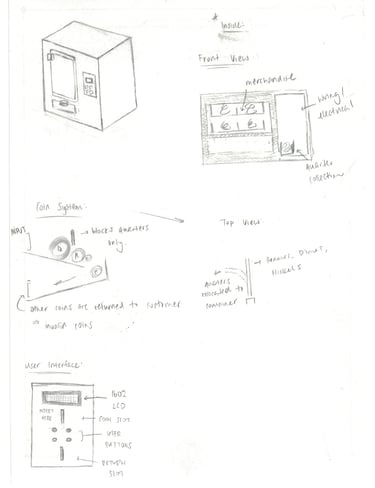 * Inside:
Front View:
merchandise
wiring/
electrical
quarter
collection
Coin System:
INPUT
blocks quarters
only
other coins are returned to customer
invalid coins
Top View:
Pennies, Dimes,
Nickels
Quarters
to
container
User Interface:
1602
LCD
INSERT
HERE
COIN SLOT
USER
BUTTONS
RETURN
SLOT